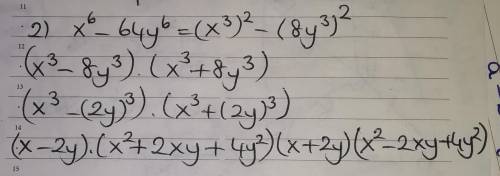 11
2) x⁶ - 64y⁶ = (x³)² - (8y³)²
12
·(x³ - 8y³) · (x³ + 8y³)
13
·(x³ - (2y)³) · (x³ + (2y)³)
14
(x - 2y) · (x² + 2xy + 4y²)(x + 2y)(x² - 2xy + 4y²)
15